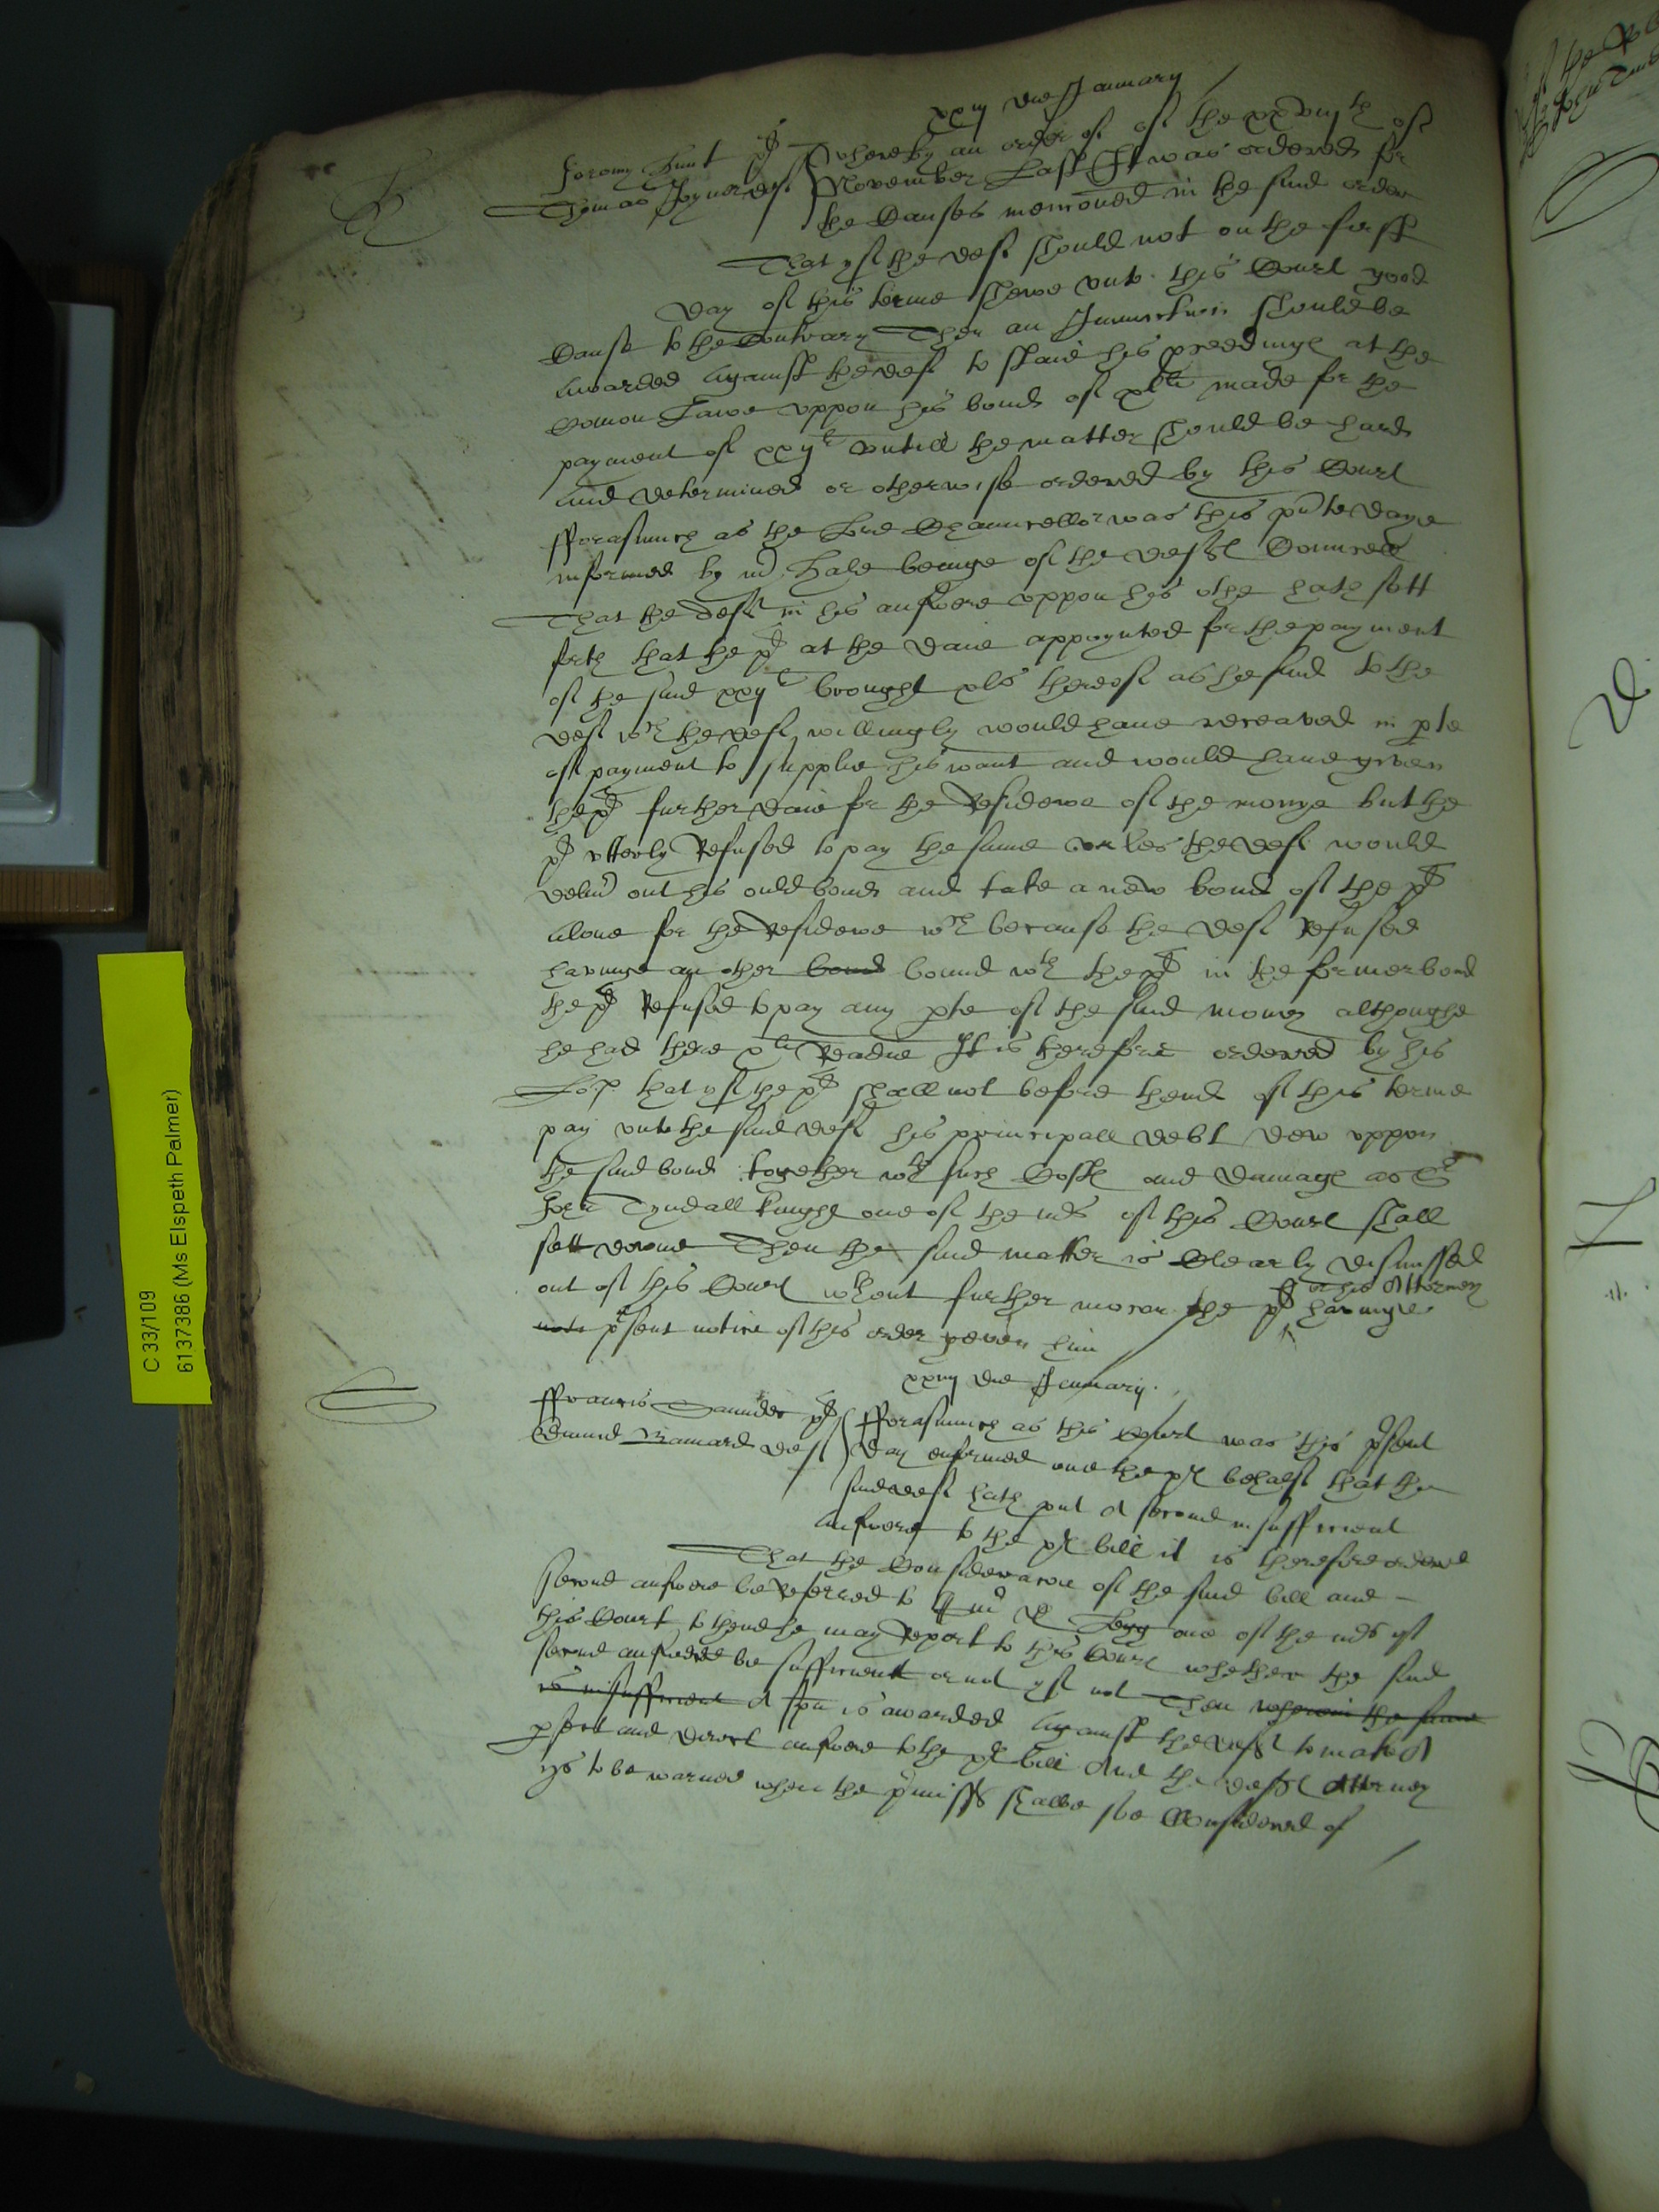 xxiij die January
Jeromy Hunt pl Whereby an order of of the xxviijth of
Thomas Joyner def November Last It was ordered for
the Causes mencioned in the said order
That yf the def should not on the first
day of this terme shewe vnto this Court good
Cause to the Contrary Then an Iniunction should be
awarded against the def to staie his proceedinge at the
Comon Lawe vppon his bond of xlli made for the
payment of xxijli vntill the matter should be hard
and determined or otherwise ordered by this Court
fforasmuch as the Lord Chauncellor was this pnte daye
informed by mr Hale beinge of the deftes Councell
That the deft in his answere vppon his othe hath sett
forth that the pl at the daie appoynted for the payment
of the said xxijli brought xls thereof as he said to the
def wch the def willingly would haue receaved in pte
of payment to supplie his want and would haue given
the pl further daie for the Residewe of the monye but the
pl vtterly Refused to pay the same vnles the def would
deliu out his ould bond and take a new bond of the pl
alone for the Residewe wch because the def Refused
havinge an other bond bound wth the pl in the former bond
the pl Refused to pay any pte of the said money althoughe
he had there xli Readie It is therefore ordered by his
Lop that yf the pl shall not before thend of this terme
pay vnto the said def his principall debt dew vppon
the said bond together wth such Costes and damages as Sr
John Tyndall knight one of the mrs of this Court shall
sett downe Then the said matter is Clearly dismissed
out of this Court wthout further mocon the pl or his Attorney havinge
note psent notice of this order geven him
xxiij die January
ffrauncis Saunder pl fforasmuch as this Court was this psent
Edmund Barnard def day enformed one the pl behalf that the
said def hath put A second insufficient
answere to the pl bill it is therefore ordered
That the Consideracon of the said bill and
second answere be Referred to mr D Legg one of the mrs of
this Court to thend he may Report to this Court whether the said
second answere be sufficient or not yf not Then wherein the same
is insufficient A spa is awarded against the deft to make A
pfect and direct answere to the pl bill And the deftes Attorney
ys to be warned when the pmisses shalbe soe Considered of
C 33/109
6137386 (Ms Elspeth Palmer)